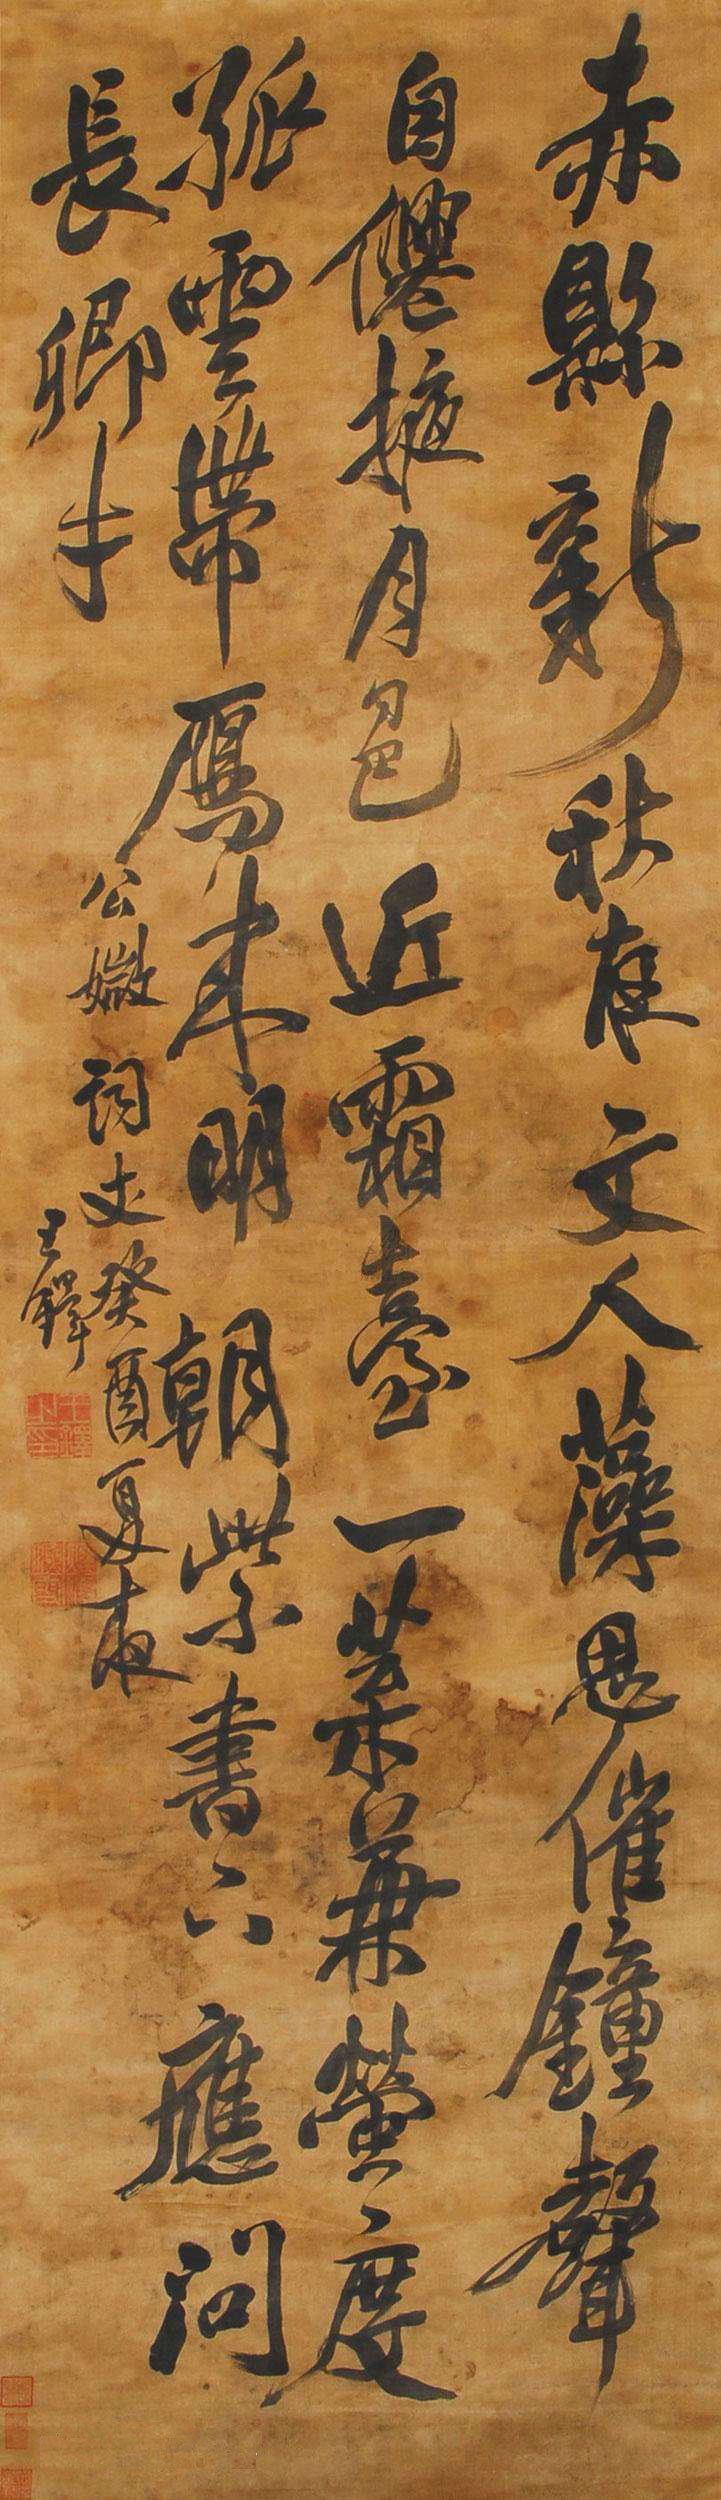 赤縣新秋夜文人藻思催鐘聲
自僊掖月色近霜臺一葉兼螢度
孤雲帶鴈來明朝紫書下應問
長卿才
公媺詞丈癸酉夏夜
王鐸
王鐸之印